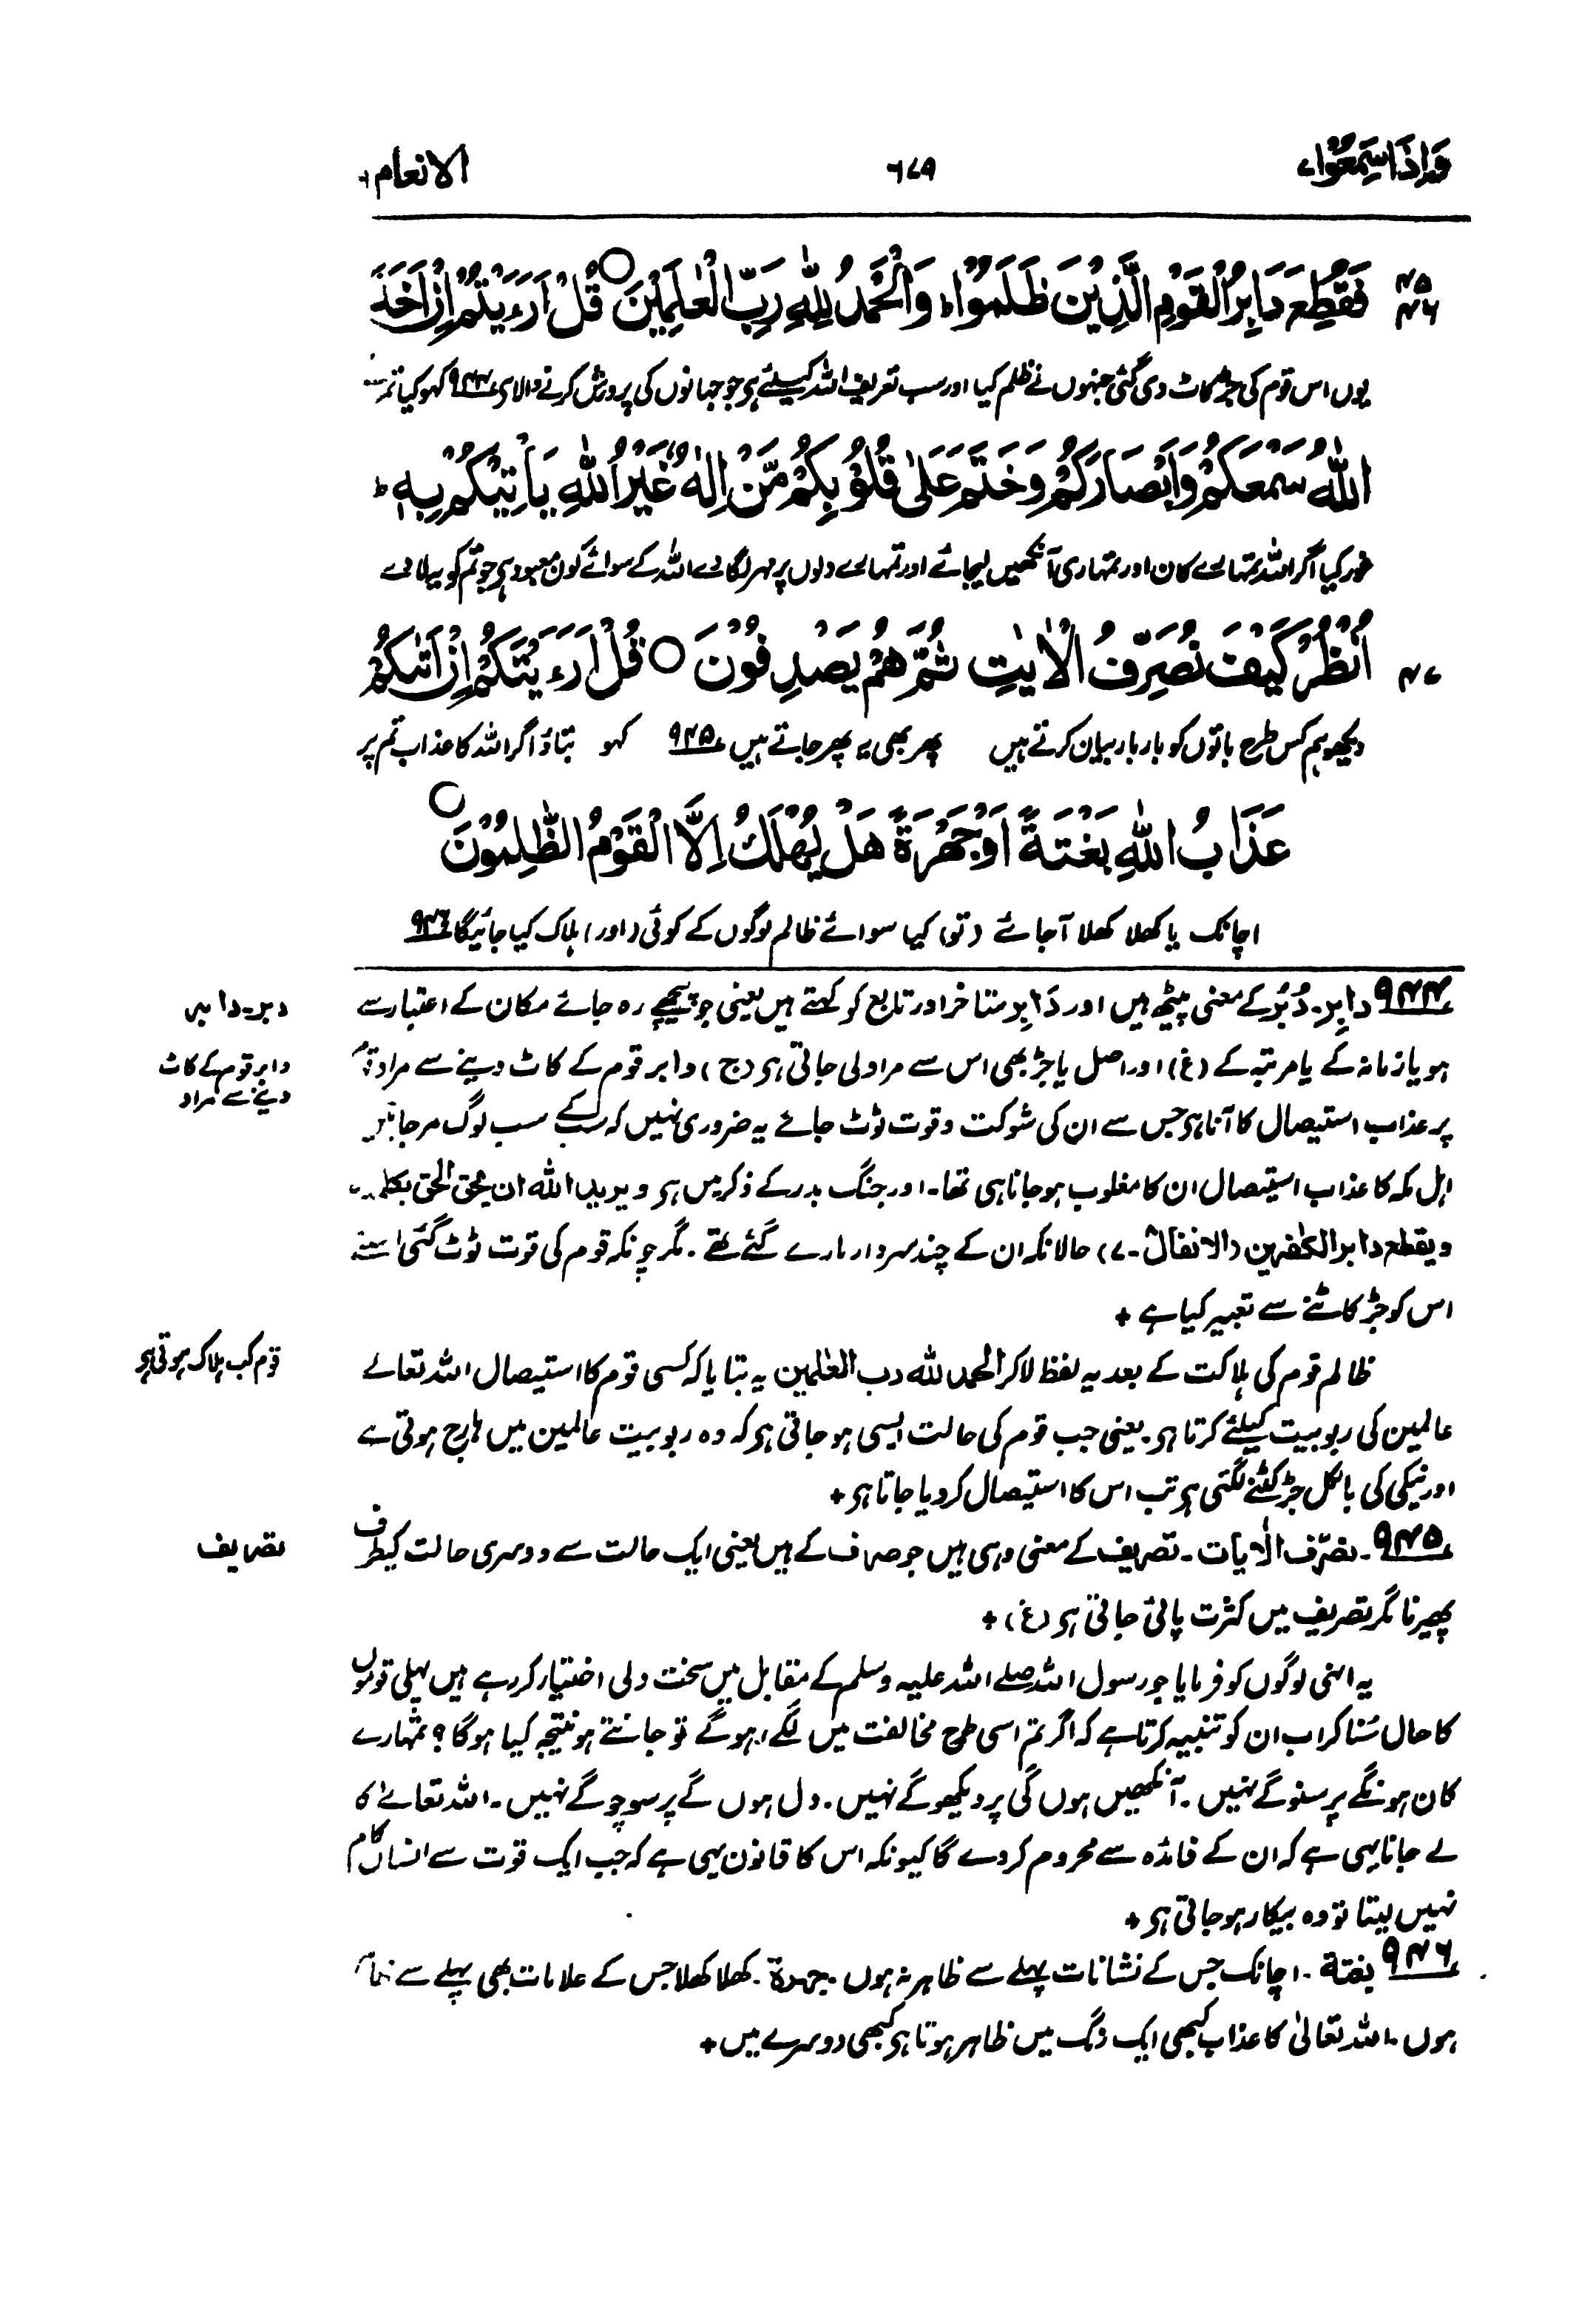 وَاِذَا سَمِعُوْا ۷
۶۷۹
الانعام ۶
۴۵
۴۶
فَقُطِعَ دَابِرُ الْقَوْمِ الَّذِيْنَ ظَلَمُوْا ؕ وَالْحَمْدُ لِلّٰهِ رَبِّ الْعٰلَمِيْنَ ○ قُلْ اَرَءَيْتُمْ اِنْ اَخَذَ
یوں اس قوم کی جڑ کاٹ دی گئی جنہوں نے ظلم کیا اور سب تعریف اللہ کیلئے ہی جو جہانوں کی پرورش کرنے والا ہی ۹۴۴ کہو کیا تم نے
اللّٰهُ سَمْعَكُمْ وَاَبْصَارَكُمْ وَخَتَمَ عَلٰى قُلُوْبِكُمْ مَّنْ اِلٰهٌ غَيْرُ اللّٰهِ يَاْتِيْكُمْ بِهٖ ؕ
غور کیا اگر اللہ تمہارے کان اور تمہاری آنکھیں لیجائے اور تمہارے دلوں پر مہر لگا دے اللہ کے سوائے کون معبود ہی جو تم کو یہ لا دے
۴۷
اُنْظُرْ كَيْفَ نُصَرِّفُ الْاٰيٰتِ ثُمَّ هُمْ يَصْدِفُوْنَ ○ قُلْ اَرَءَيْتَكُمْ اِنْ اَتٰىكُمْ
دیکھو ہم کس طرح باتوں کو بار بار بیان کرتے ہیں پھر بھی یہ پھر جاتے ہیں ۹۴۵ کہو بتاؤ اگر اللہ کا عذاب تم پر
عَذَابُ اللّٰهِ بَغْتَةً اَوْ جَهْرَةً هَلْ يُهْلَكُ اِلَّا الْقَوْمُ الظّٰلِمُوْنَ ○
اچانک یا کھلا کھلا آجائے (تو) کیا سوائے ظالم لوگوں کے کوئی (اور) ہلاک کیا جائیگا ۹۴۶
۹۴۴ دابِر۔ دُبُر کے معنی پیٹھ ہیں اور دَابِر متاخر اور تابع کو کہتے ہیں یعنی جو پیچھے رہ جائے مکان کے اعتبار سے
دبر۔ دابر
ہو یا زمانہ کے یا مرتبہ کے (غ) اور اصل یا جڑ بھی اس سے مراد لی جاتی ہی (ج) دابر قوم کے کاٹ دینے سے مراد
دابر قوم کے کاٹ
دینے سے مراد
پر عذاب استیصال کا آنا ہی جس سے ان کی شوکت و قوت ٹوٹ جائے یہ ضروری نہیں کہ سب کے سب لوگ مر جائیں
اہل مکہ کا عذاب استیصال ان کا مغلوب ہو جانا ہی تھا۔ اور جنگ بدر کے ذکر میں ہی ویرید اللہ ان یحق الحق بکلمٰتہ
ویقطع دابر الکٰفرین (الانفال۔ ۷) حالانکہ ان کے چند سردار مارے گئے تھے۔ مگر چونکہ قوم کی قوت ٹوٹ گئی اسلئے
اس کو جڑ کاٹنے سے تعبیر کیا ہے +
ظالم قوم کی ہلاکت کے بعد یہ لفظ لاکر الحمد للہ رب العٰلمین یہ بتایا کہ کسی قوم کا استیصال اللہ تعالے
قوم کب ہلاک ہوتی ہی
عالمین کی ربوبیت کیلئے کرتا ہی۔ یعنی جب قوم کی حالت ایسی ہو جاتی ہی کہ وہ ربوبیت عالمین میں ہارج ہوتی ہے
اور نیکی کی بالکل جڑ کٹنے لگتی ہی تب اس کا استیصال کر دیا جاتا ہی +
۹۴۵۔ نصرّف الاٰیات۔ تصریف کے معنی وہی ہیں جو صرف کے ہیں یعنی ایک حالت سے دوسری حالت کیطرف
تصریف
پھیرنا مگر تصریف میں کثرت پائی جاتی ہی (غ) +
یہ انہی لوگوں کو فرمایا جو رسول اللہ صلے اللہ علیہ وسلم کے مقابل میں سخت دلی اختیار کر رہے ہیں پہلی قوموں
کا حال سُنا کر اب ان کو تنبیہ کرتا ہے کہ اگر تم اسی طرح مخالفت میں لگے رہو گے تو جانتے ہو نتیجہ کیا ہوگا؟ تمہارے
کان ہونگے پر سنو گے نہیں۔ آنکھیں ہوں گی پر دیکھو گے نہیں۔ دل ہوں گے پر سوچو گے نہیں۔ اللہ تعالےٰ کا
لے جانا یہی ہے کہ ان کے فائدہ سے محروم کر دے گا کیونکہ اس کا قانون یہی ہے کہ جب ایک قوت سے انسان کام
نہیں لیتا تو وہ بیکار ہو جاتی ہی +
۹۴۶ بغتۃ۔ اچانک جس کے نشانات پہلے سے ظاہر نہ ہوں۔ جہرۃ۔ کھلا کھلا جس کے علامات بھی پہلے سے
ہوں۔ اللہ تعالیٰ کا عذاب کبھی ایک رنگ میں ظاہر ہوتا ہی کبھی دوسرے میں +